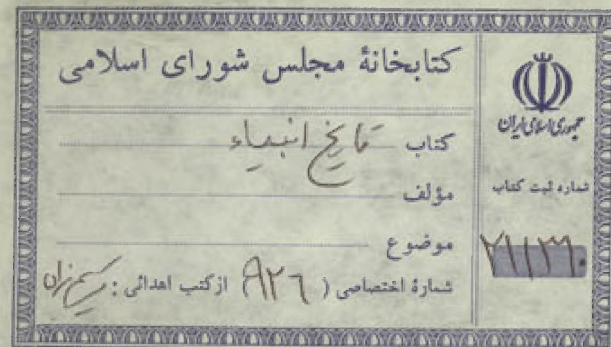 کتابخانهٔ مجلس شورای اسلامی
کتاب تاریخ انبیاء
مؤلف
موضوع
شمارهٔ اختصاصی ( ۹۲۶ ) از کتب اهدائی :
جمهوری اسلامی ایران
شماره ثبت کتاب